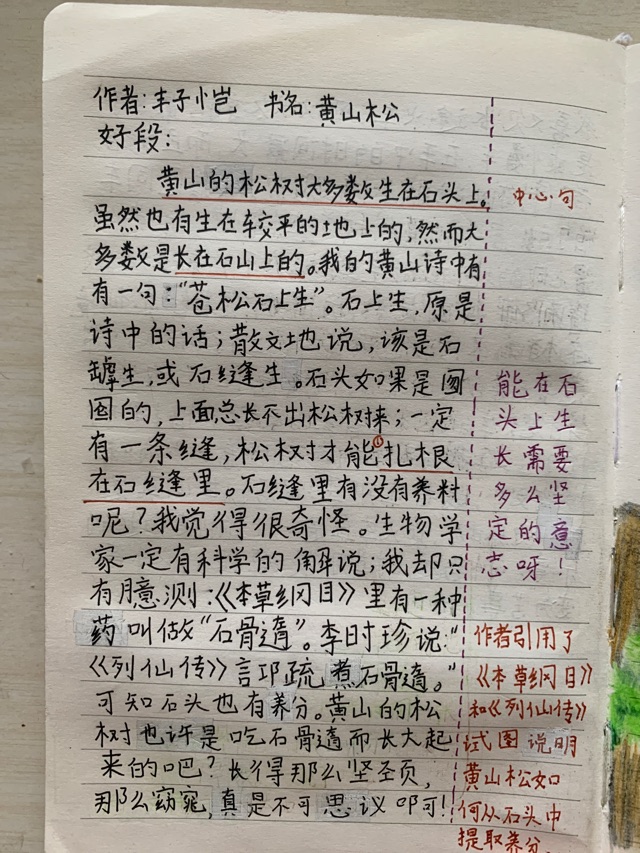 作者:丰子恺 书名:黄山松
好段:
黄山的松树大多数生在石头上。
虽然也有生在较平的地上的,然而大
多数是长在石山上的。我的黄山诗中有
有一句:“苍松石上生”。石上生,原是
诗中的话;散文地说,该是石
罅生,或石缝生。石头如果是囫
囵的,上面总长不出松树来;一定
有一条缝,松树才能①扎根
在石缝里。石缝里有没有养料
呢?我觉得很奇怪。生物学
家一定有科学的解说;我却只
有臆测:《本草纲目》里有一种
药叫做“石骨遀”。李时珍说:“
《列仙传》言邛疏煮石骨遀。”
可知石头也有养分。黄山的松
树也许是吃石骨遀而长大起
来的吧?长得那么坚
那么窈窕,真是不可思议叩可!
中心句
能在石
头上生
长需要
多么坚
定的意
志呀!
作者引用了
《本草纲目》
和《列仙传》
试图说明
黄山松如
何从石头中
提取养分。